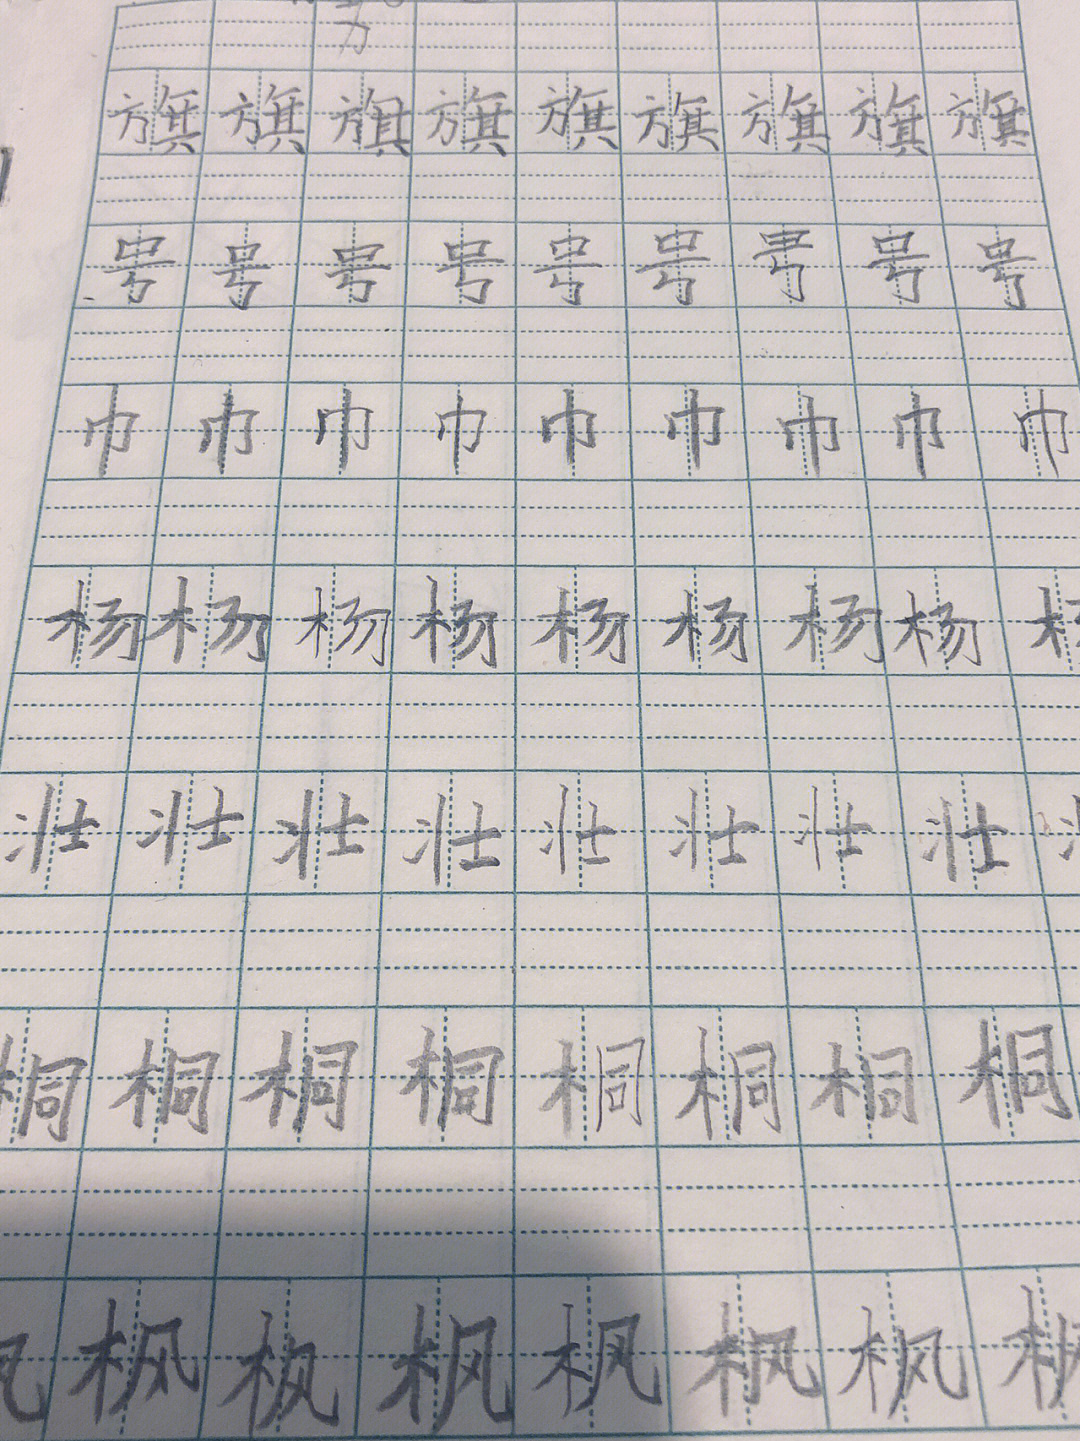 旗旗旗旗旗旗旗旗旗
号号号号号号号号号
巾巾巾巾巾巾巾巾巾
杨杨杨杨杨杨杨杨杨
壮壮壮壮壮壮壮壮
桐桐桐桐桐桐桐桐
枫枫枫枫枫枫枫